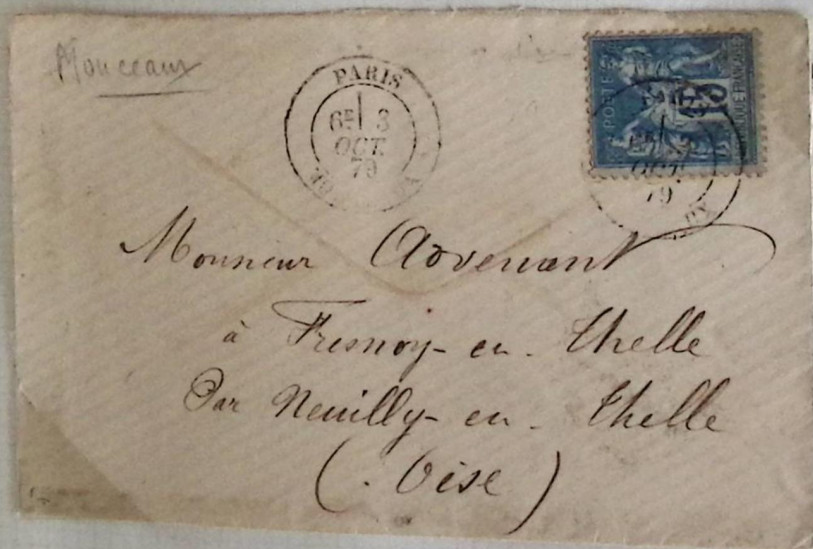 Monceaux
PARIS
6E 3
OCT.
79
POSTES
15
OCT.
79
Monsieur Advenant
à Fresnoy-en-Thelle
Par Neuilly-en-Thelle
(Oise)